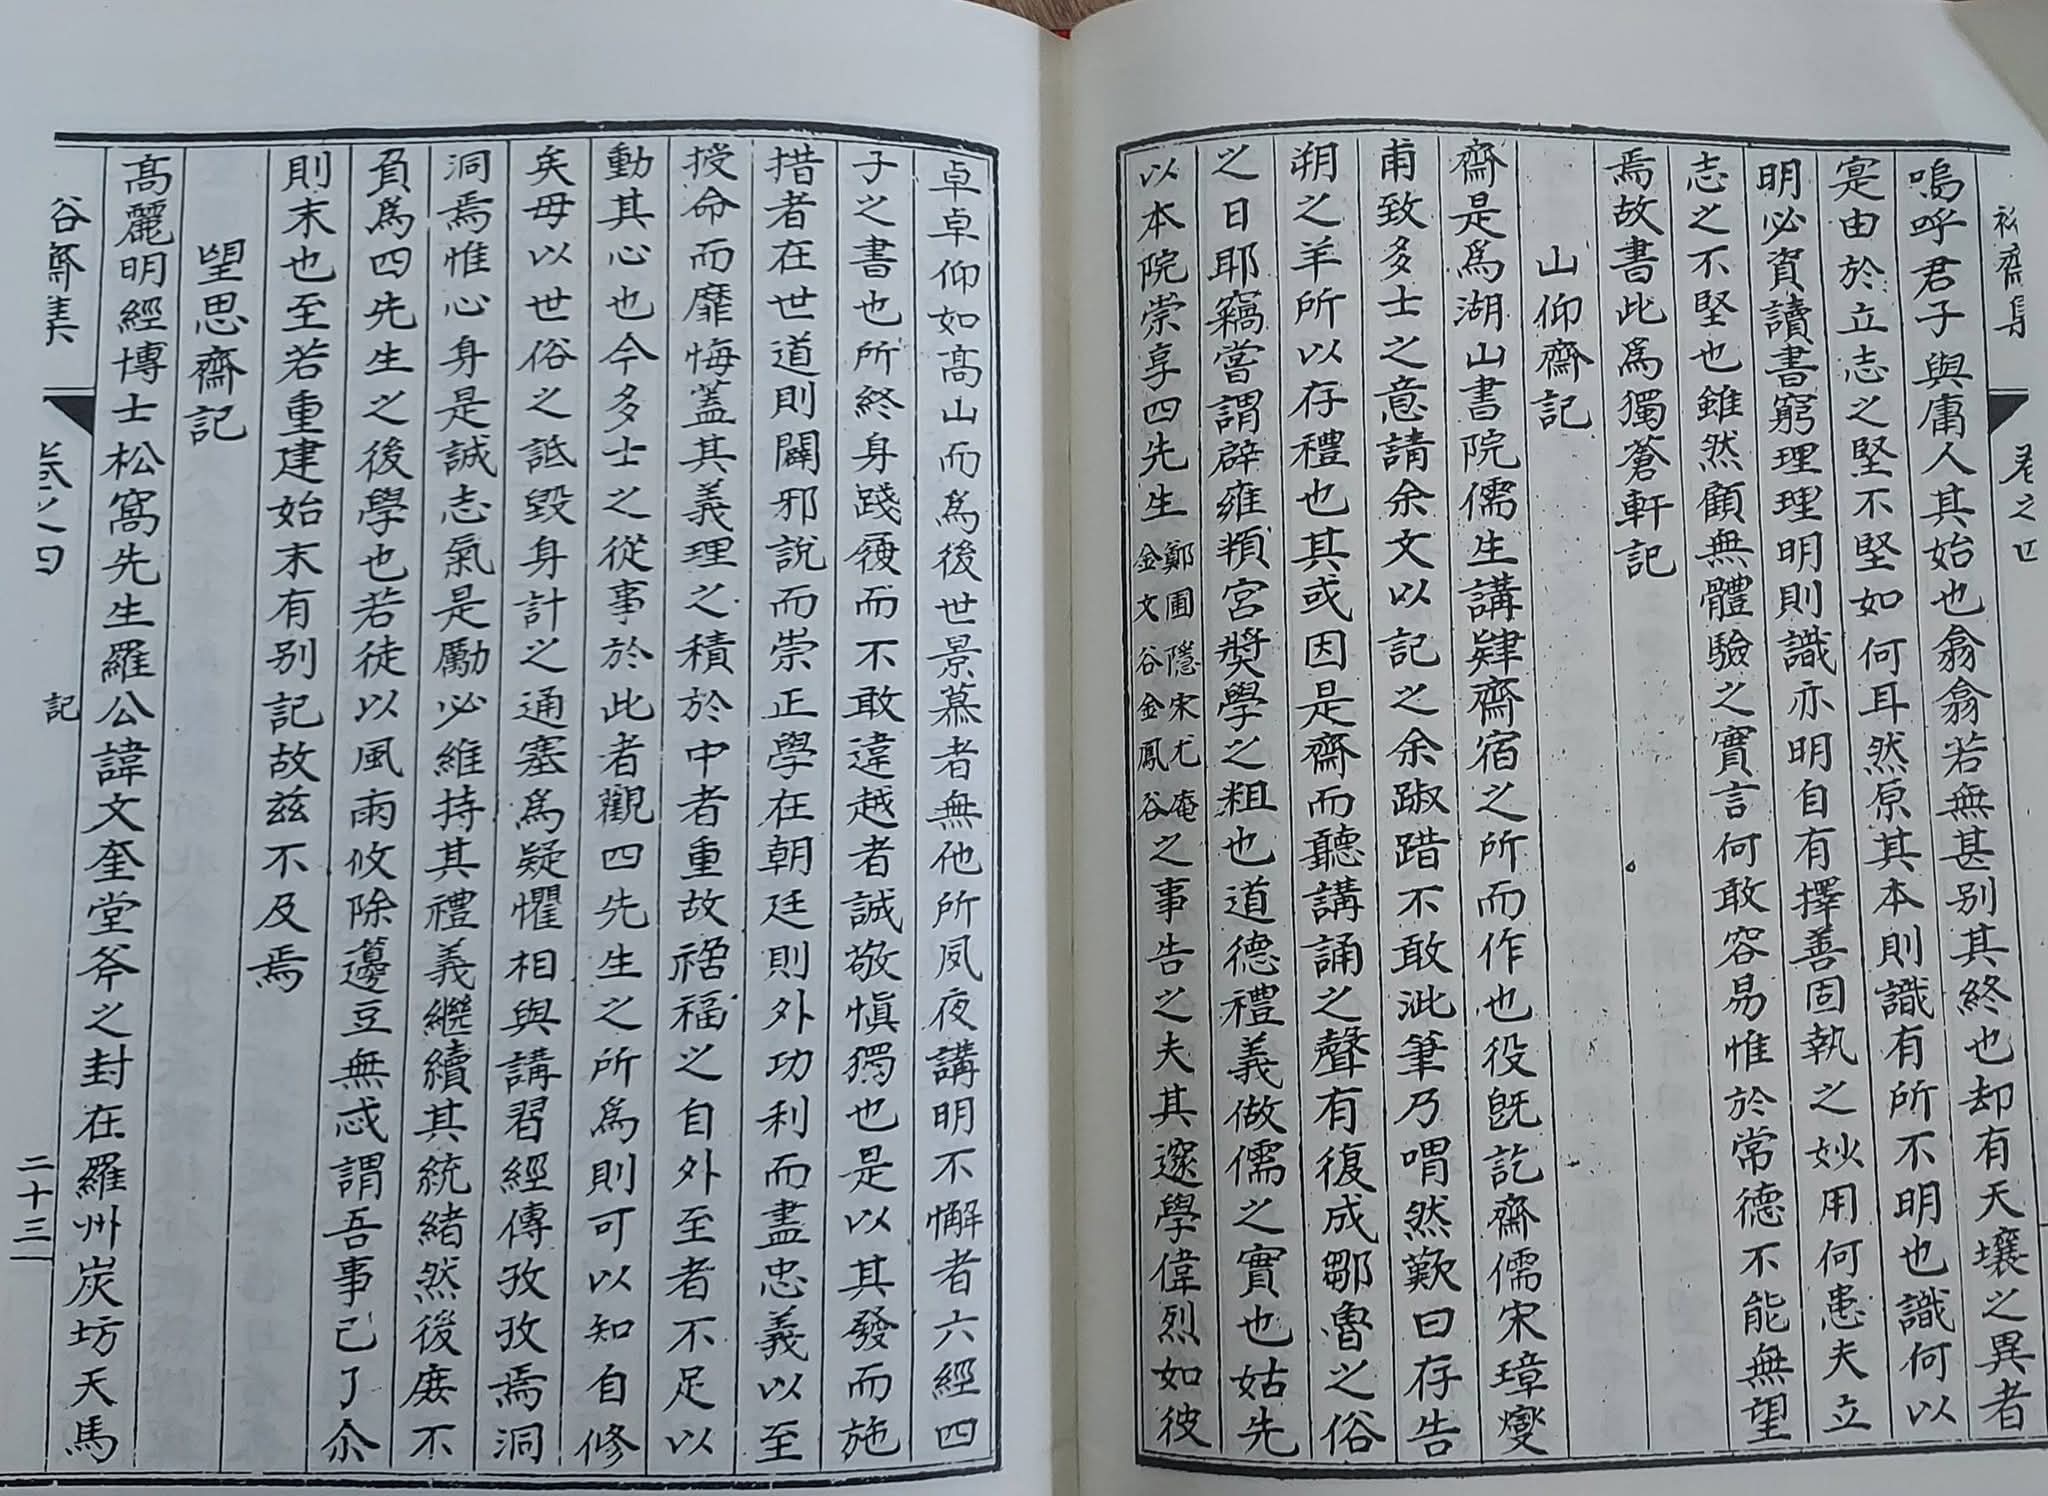 齋集 卷之四
嗚呼君子與庸人其始也翕翕若無甚别其終也却有天壤之異者
寔由於立志之堅不堅如何耳然原其本則識有所不明也識何以
明必資讀書窮理理明則識亦明自有擇善固執之妙用何患夫立
志之不堅也雖然顧無體驗之實言何敢容易惟於常德不能無望
焉故書此爲獨蒼軒記
山仰齋記
齋是爲湖山書院儒生講肄齋宿之所而作也役旣訖齋儒宋璋燮
甫致多士之意請余文以記之余踧踖不敢泚筆乃喟然歎曰存告
朔之羊所以存禮也其或因是齋而聽講誦之聲有復成鄒魯之俗
之日耶竊嘗謂辟雍頖宮獎學之粗也道德禮義做儒之實也姑先
以本院崇享四先生鄭圃隱宋尤庵金文谷金鳳谷之事告之夫其邃學偉烈如彼
卓卓仰如髙山而爲後世景慕者無他所夙夜講明不懈者六經四
子之書也所終身踐履而不敢違越者誠敬愼獨也是以其發而施
措者在世道則闢邪說而崇正學在朝廷則外功利而盡忠義以至
授命而靡悔蓋其義理之積於中者重故禍福之自外至者不足以
動其心也今多士之從事於此者觀四先生之所爲則可以知自修
矣毋以世俗之詆毀身計之通塞爲疑懼相與講習經傳孜孜焉洞
洞焉惟心身是誠志氣是勵必維持其禮義繼續其統緖然後庶不
負爲四先生之後學也若徒以風雨攸除籩豆無忒謂吾事已了尒
則末也至若重建始末有别記故玆不及焉
望思齋記
髙麗明經博士松窩先生羅公諱文奎堂斧之封在羅州炭坊天馬
谷齋集 卷之四 記 二十三